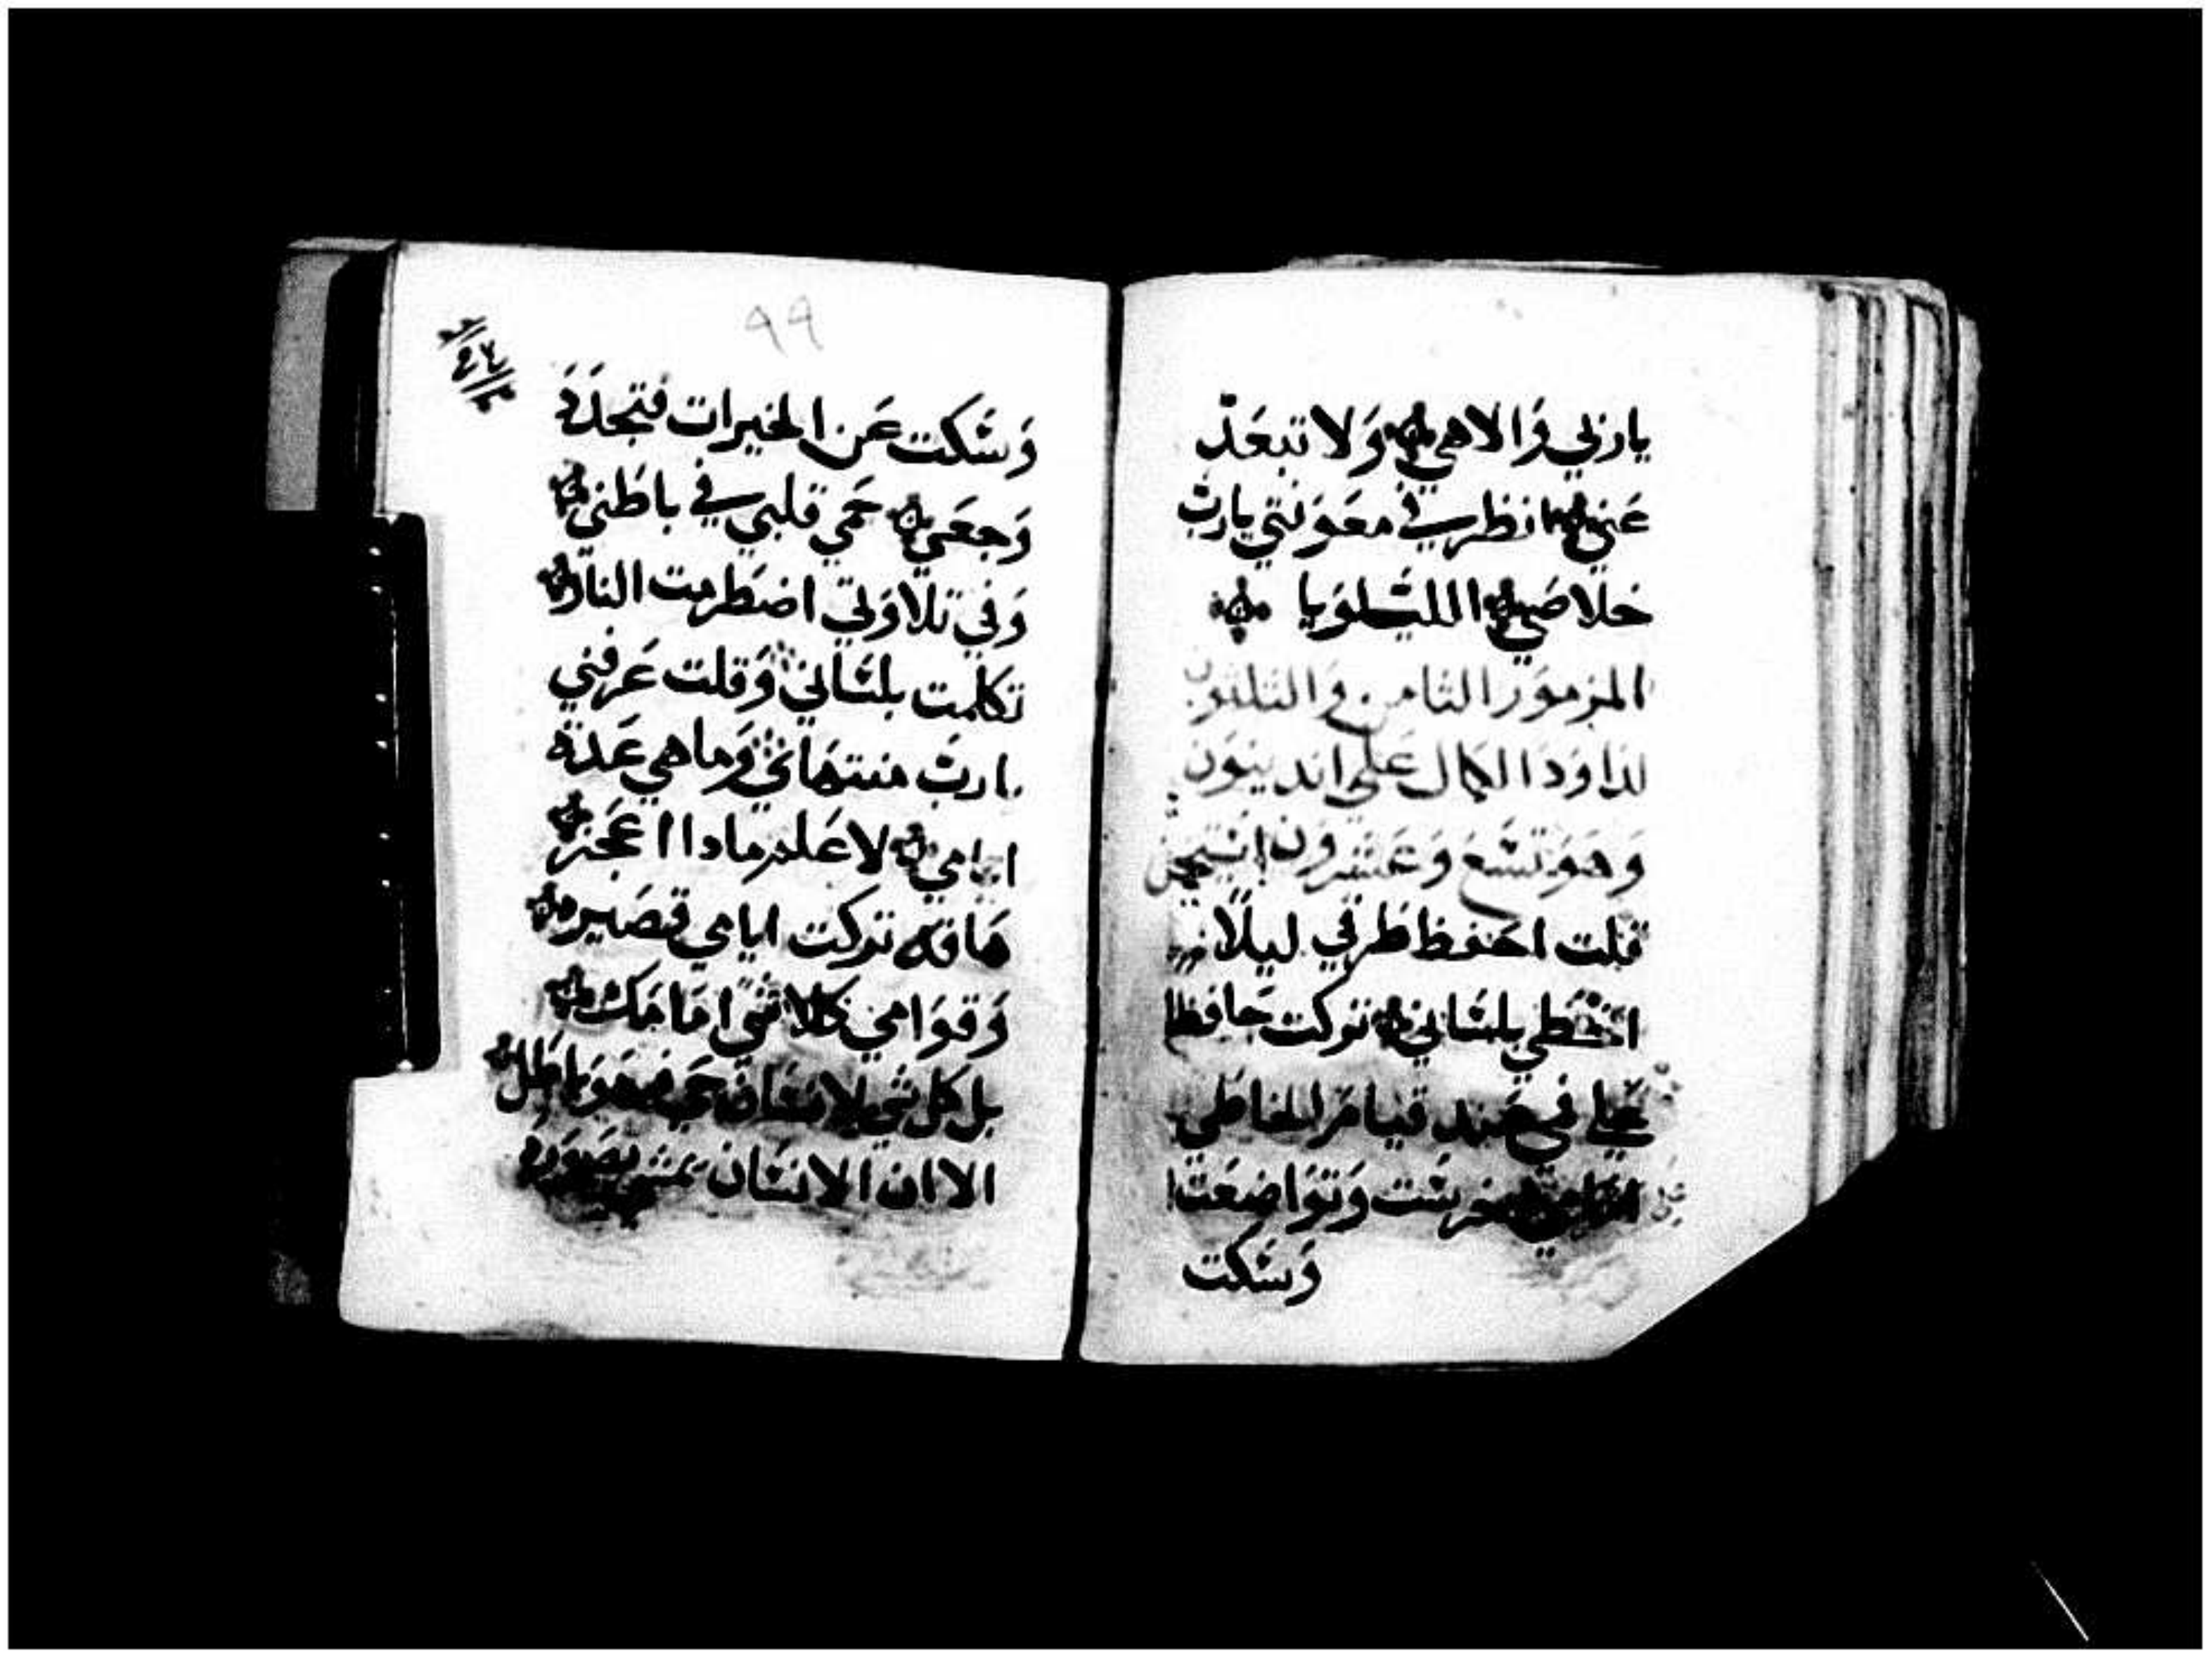 يا ربي وَالاهي وَلا تبعَدْ
عَني انظر في معَوَنتي يا ربْ
خلاصَي الليلوَيا
المزموَر الثامن وَالثلثوَن
لداوَد الكمال عَلي انديتوَن
وَهوَ تسَعَ وَعَشرَون
قلت احَفظ طرقي ليلا
اخَطي بلسَاني تركت حَافظا
قيامَ الخاطي
خرسَت وَتوَاضعَت
وَسَكت
٩٩
وَسَكت عَن الخيرات فتجدَدَ
وَجعَي حَمي قلبي في باطَني
وَفي تلاوَتي اضطَرمت النار
تكلمت بلسَاني وَقلت عَرفني
يا ربَ منتهَاي وَما هي عَدة
ايامي لاعَلم ماداا عَجز
هَاقد تركت ايامي قصَيره
وَقوَامي كلا شي امَامَك
بل كل شي الانسَان حَي هوَ باطَل
الا ان الانسَان يمشي بصَوَرَة